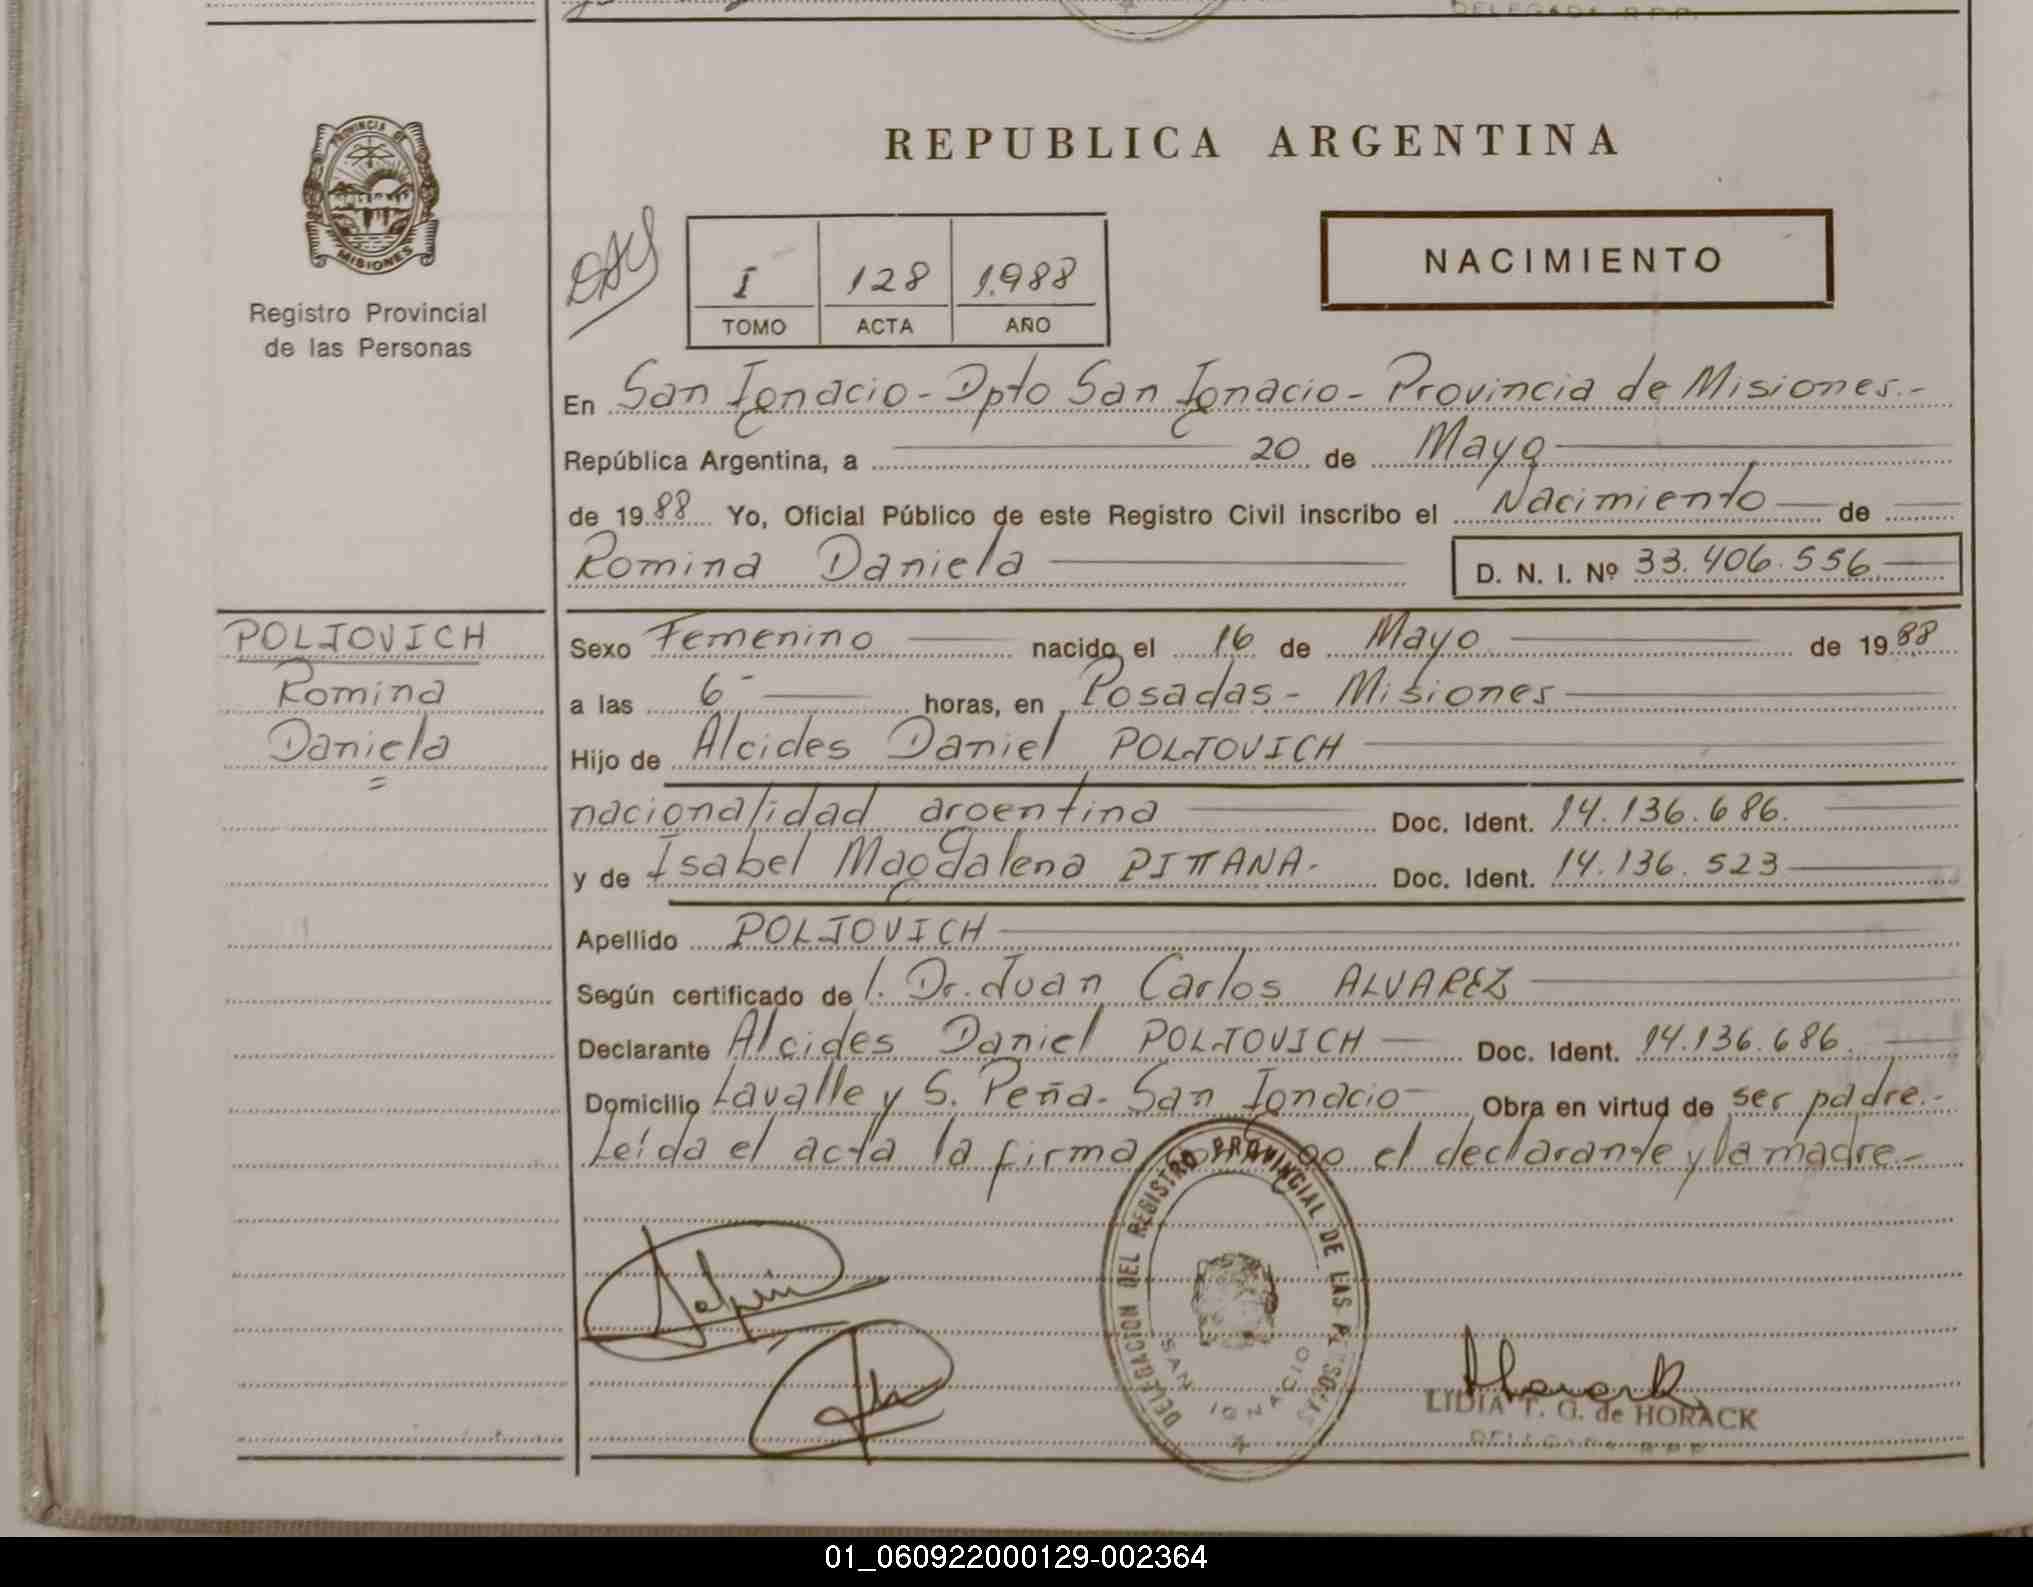 DELEGADA R.P.P.
PROVINCIA DE
MISIONES
Registro Provincial
de las Personas
REPUBLICA ARGENTINA
NACIMIENTO
I 128 1.988
TOMO ACTA AÑO
En San Ignacio - Dpto San Ignacio - Provincia de Misiones.-
República Argentina, a 20 de Mayo
de 1988 Yo, Oficial Público de este Registro Civil inscribo el Nacimiento de
Romina Daniela D. N. I. Nº 33.406.556
POLJOVICH
Romina
Daniela
Sexo Femenino nacido el 16 de Mayo de 1988
a las 6- horas, en Posadas - Misiones
Hijo de Alcides Daniel POLJOVICH
nacionalidad argentina Doc. Ident. 14.136.686.
y de Isabel Magdalena PITTANA.- Doc. Ident. 14.136.523
Apellido POLJOVICH
Según certificado de l. Dr. Juan Carlos ALVAREZ
Declarante Alcides Daniel POLJOVICH Doc. Ident. 14.136.686.
Domicilio Lavalle y S. Peña. San Ignacio Obra en virtud de ser padre.-
Leída el acta la firma el declarante y la madre.-
DELEGACION DEL REGISTRO PROVINCIAL DE LAS
SAN IGNACIO
Horack
LIDIA T. G. de HORACK
DELEGADA R.P.P.
01_060922000129-002364